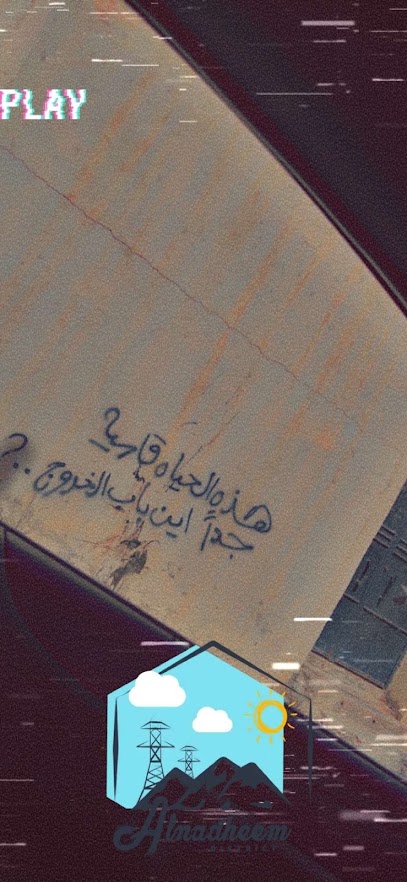 PLAY
هذه الحياه قاسية
جداً اين باب الخروج..؟
Alnadheem
DISTRICT